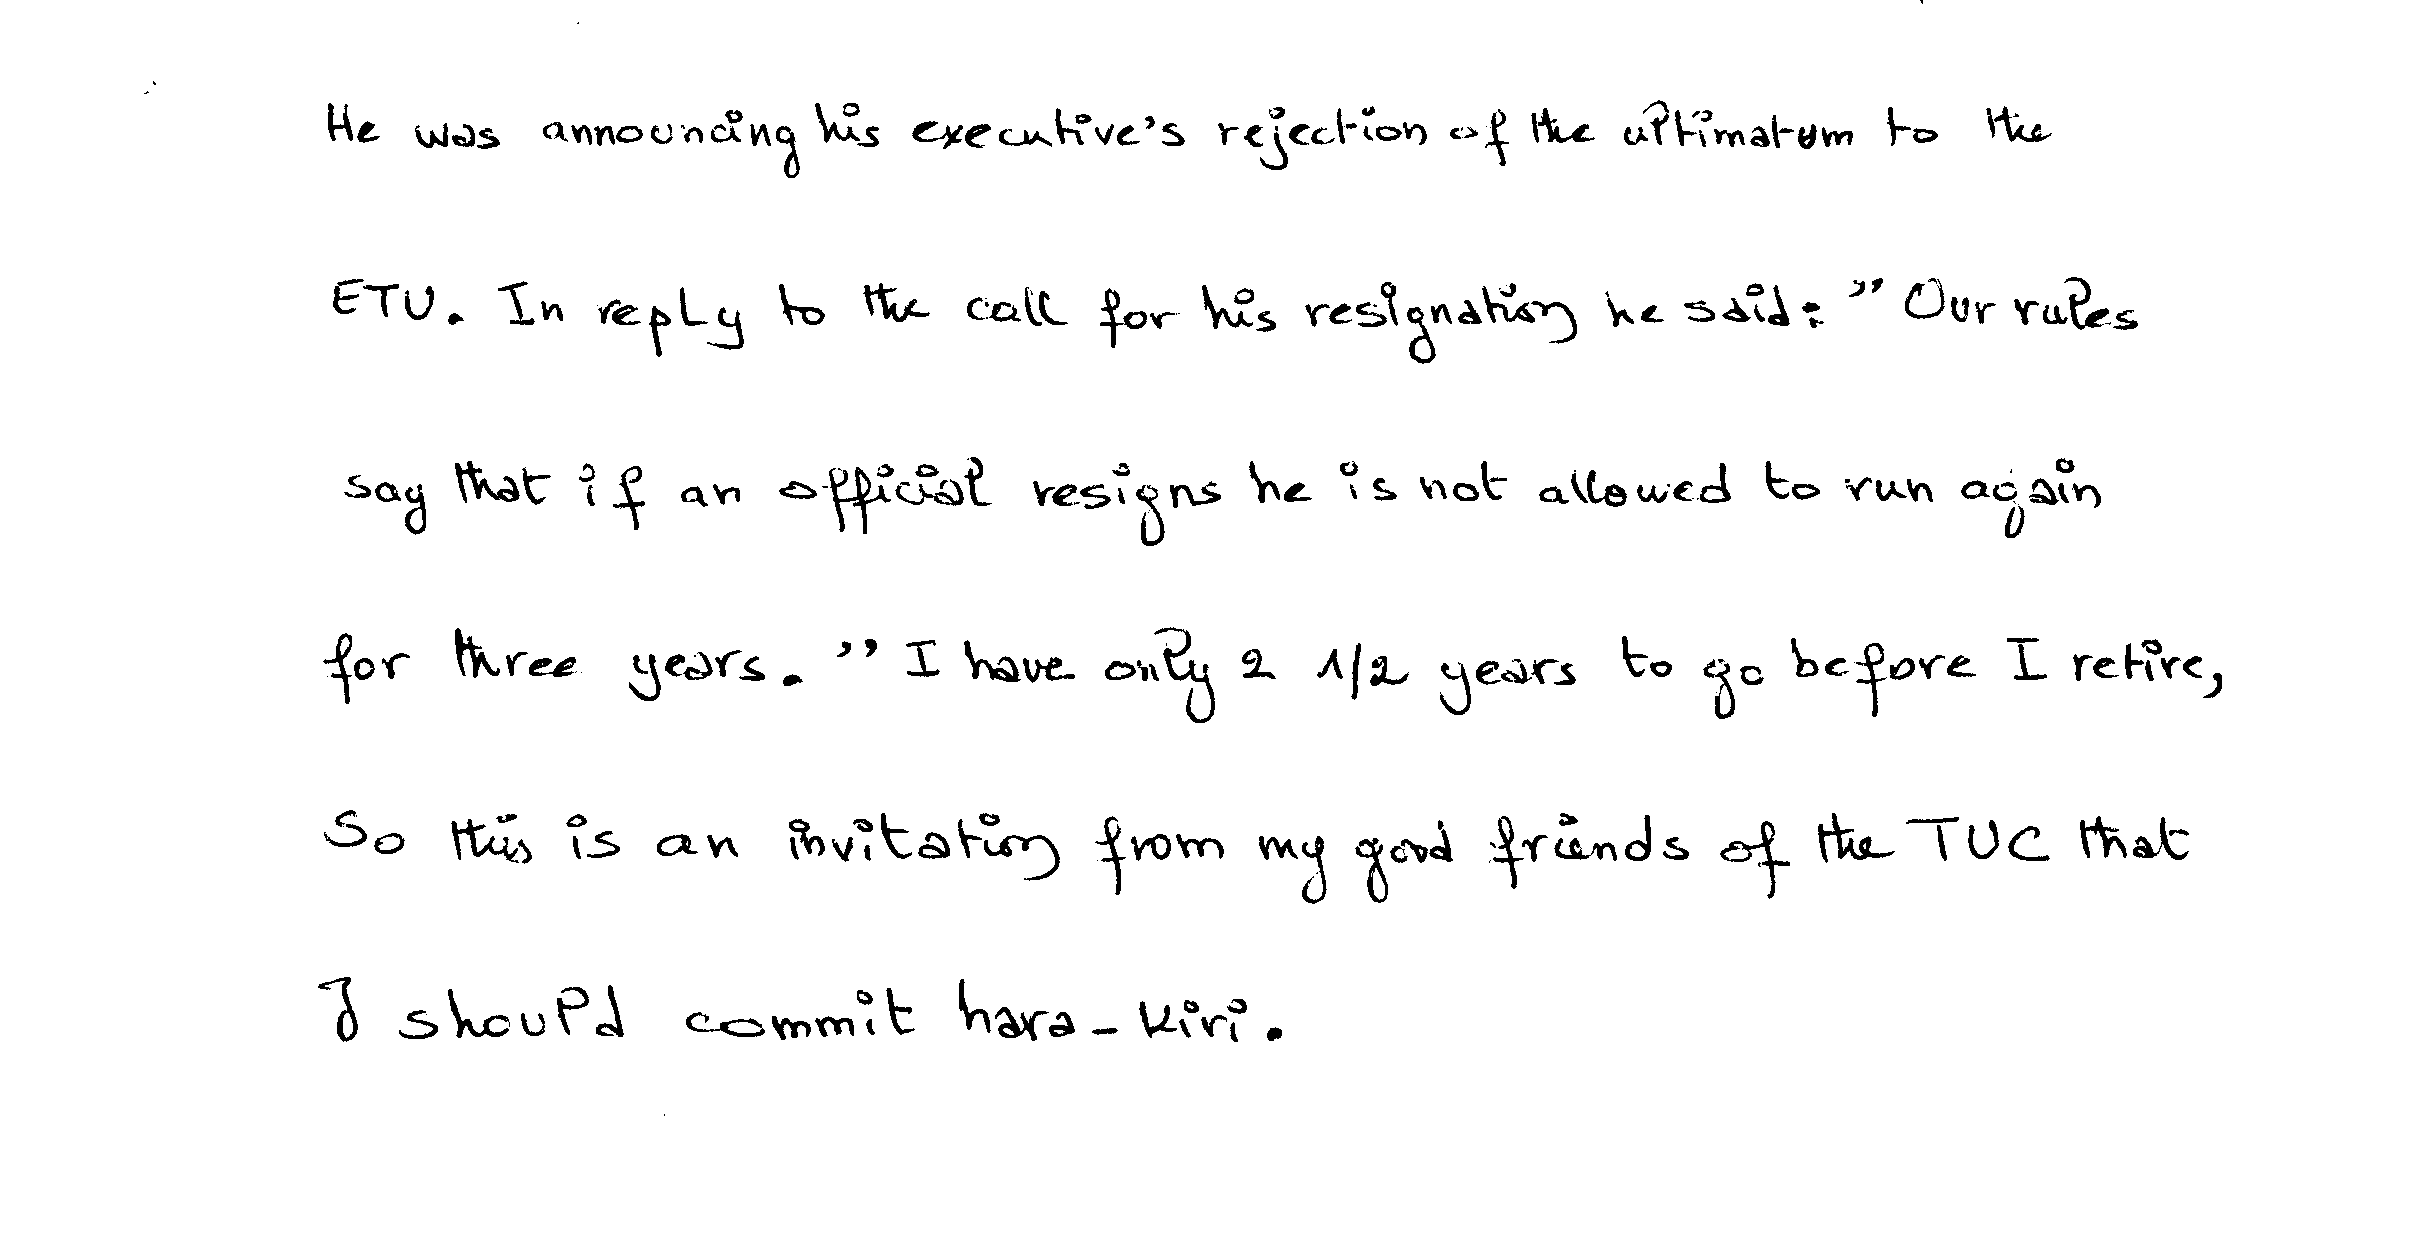 He was announcing his executive's rejection of the ultimatum to the
ETU. In reply to the call for his resignation he said: " Our rules
say that if an official resigns he is not allowed to run again
for three years. " I have only 2 1/2 years to go before I retire,
So this is an invitation from my good friends of the TUC that
I should commit hara-kiri.